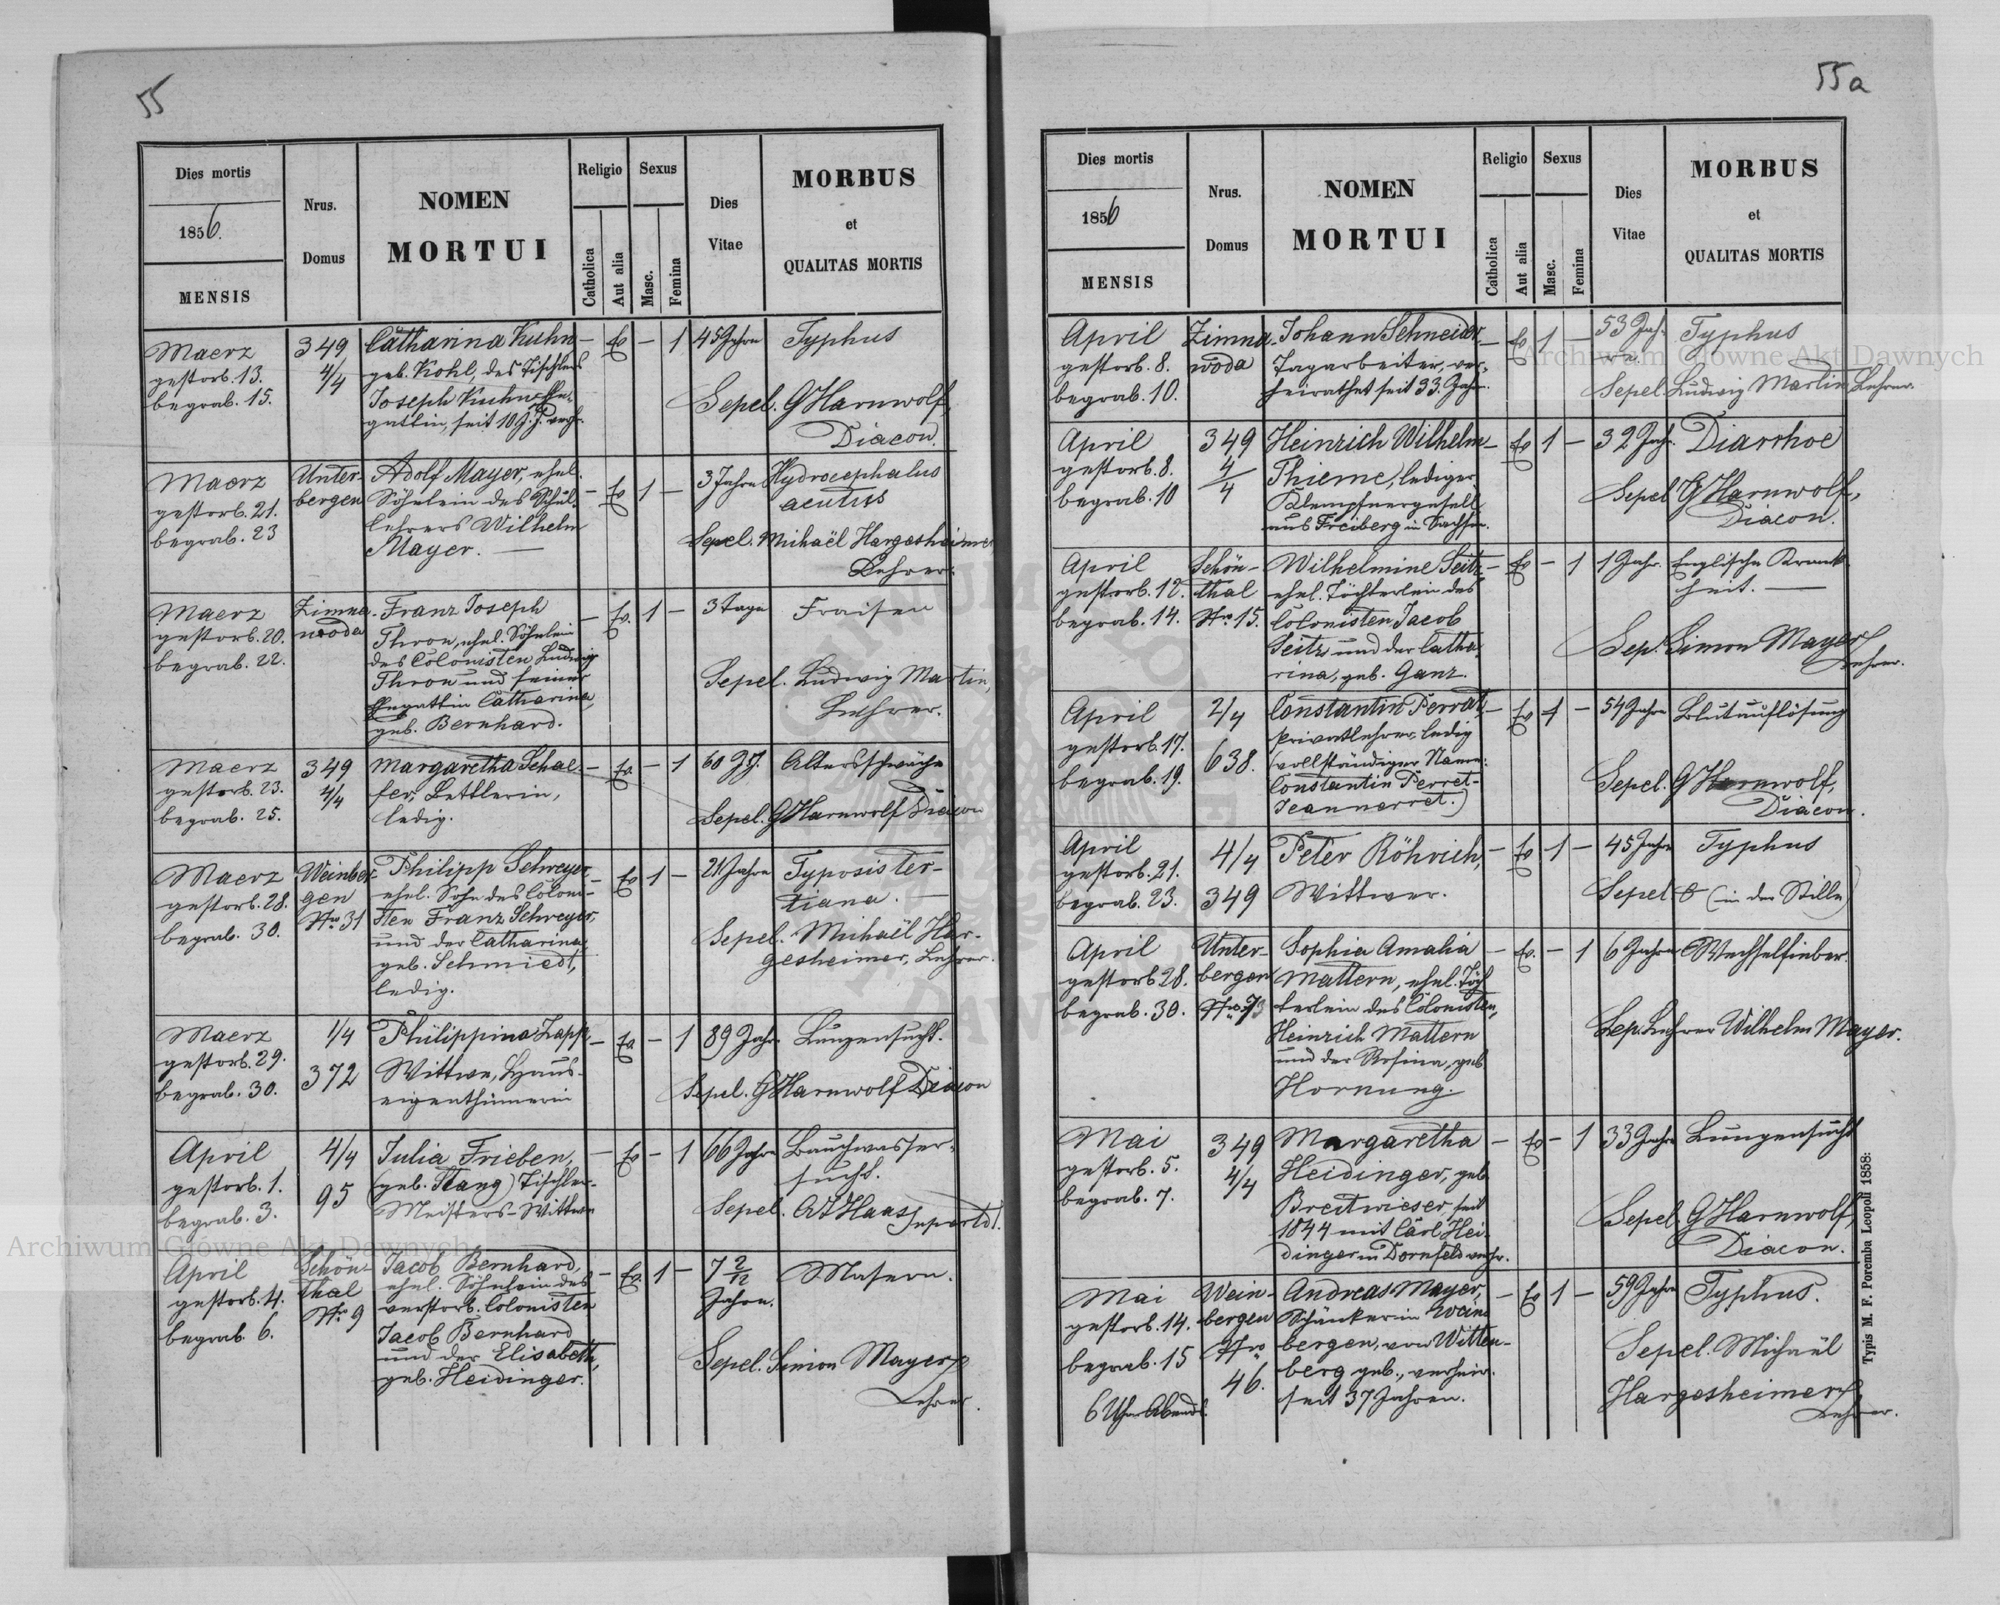 55
Dies mortis
1856.
MENSIS
Nrus.
Domus
NOMEN
MORTUI
Religio
Catholica
Aut alia
Sexus
Masc.
Femina
Dies
Vitae
MORBUS
et
QUALITAS MORTIS
Maerz
gestorb. 13.
begrab. 15.
349
4/4
Catharina Kuhn
geb. Kohl, des Tischlers
Joseph Kuhn
gattin, seit 10
— Ev — 1
45 Jahre
Typhus
Sepel. GHarnwolf,
Diacon.
Maerz
gestorb. 21.
begrab. 23
Unter-
bergen
Adolf Mayer, ehel.
Söhnlein des Schul-
lehrers Wilhelm
Mayer. —
— Ev 1 —
3 Jahre
Hydrocephalus
acutus
Sepel. Michaël Hargesheimer
Lehrer.
Maerz
gestorb. 20.
begrab. 22.
Zimna-
woda
Franz Joseph
Thron, ehel. Söhnlein
des Colonisten Ludwig
Thron und seiner
Ehegattin Catharina,
geb. Bernhard.
— Ev. 1 —
3 Tage
Fraisen
Sepel. Ludwig Martin,
Lehrer.
Maerz
gestorb. 23.
begrab. 25.
349
4/4
Margaretha Schae-
fer, Bettlerin,
ledig.
— Ev. — 1
60
Altersschwäche
Sepel. GHarnwolf Diacon
Maerz
gestorb. 28.
begrab. 30.
Weinber-
gen
Nro 31
Philipp Schreyer
ehel. Sohn des Coloni-
sten Franz Schreyer,
und der Catharina,
geb. Schmiedt,
ledig.
— Ev 1 —
21 Jahre
Typosister-
tiana. —
Sepel. Michaël Har-
gesheimer, Lehrer.
Maerz
gestorb. 29.
begrab. 30.
1/4
372
Philippina Zapp
Wittwe, Haus-
eigenthümerin
— Ev — 1
89 Jahr
Lungensucht.
Sepel. GHarnwolf Diacon
April
gestorb. 1.
begrab. 3.
4/4
95
Julia Frieben,
(geb. Stang) Tischler-
Meisters-Wittwe
— Ev — 1
66 Jahre
Bauchwasser-
sucht.
Sepel. Haas
April
gestorb. 4.
begrab. 6.
Schön-
thal
Nro 9
Jacob Bernhard,
ehel. Söhnlein des
verstorb. Colonisten
Jacob Bernhard
und der Elisabeth,
geb. Heidinger.
— Ev. 1 —
7 2/12
Jahre.
Masern.
Sepel. Simon Mayer
Lehrer.
55a
Dies mortis
1856
MENSIS
Nrus.
Domus
NOMEN
MORTUI
Religio
Catholica
Aut alia
Sexus
Masc.
Femina
Dies
Vitae
MORBUS
et
QUALITAS MORTIS
April
gestorb. 8.
begrab. 10.
Zimna-
woda
Johann Schneider
Tagarbeiter, ver-
heirathet seit 33 Jahr.
— Ev 1 —
53 Jah.
Typhus
Sepel. Ludwig Martin Lehrer.
April
gestorb. 8.
begrab. 10
349
4/4
Heinrich Wilhelm
Thieme, lediger
Klempnergesell
aus Freiberg in Sachsen.
— Ev 1 —
32 Jah.
Diarrhoe
Sepel GHarnwolf,
Diacon.
April
gestorb. 12.
begrab. 14.
Schön-
thal
Nro 15.
Wilhelmine Seitz
ehel. Töchterlein des
Colonisten Jacob
Seitz und der Catha-
rina, geb. Ganz.
— Ev — 1
1 Jahr.
Englische Krank-
heit. —
Sep. Simon Mayer
Lehrer.
April
gestorb. 17.
begrab. 19.
2/4
638.
Constantin Perrat
Privatlehrer ledig
(vollständiger Name:
Constantin Perret-
Jeannerret.)
— Ev 1 —
54 Jahre
Blutauflösung
Sepel. GHarnwolf,
Diacon.
April
gestorb. 21.
begrab. 23.
4/4
349
Peter Röhrich,
Wittwer.
— Ev 1 —
45 Jahre
Typhus
Sepel (in der Stille)
April
gestorb 28.
begrab. 30.
Unter-
bergen
Sophia Amalia
Mattern, ehel. Töch-
terlein des Colonisten,
Heinrich Mattern
und der Rosina, geb
Hornung.
— Ev. — 1
6 Jahre
Wechselfieber.
Sep. Lehrer Wilhelm Mayer.
Mai
gestorb. 5.
begrab. 7.
349
4/4
Margaretha
Heidinger, geb.
Breitwieser, seit
1844 mit Carl Hei-
dinger in Dornfeld verhr.
— Ev — 1
33 Jahre
Lungensucht
Sepel. GHarnwolf,
Diacon.
Mai
gestorb. 14.
begrab. 15
6 Uhr Abends.
Wein-
bergen
Nro
46.
Andreas Mayer,
Schänker in Wein-
bergen, von Witten-
berg geb., verheir.
seit 37 Jahren.
— Ev 1 —
59 Jahre
Typhus.
Sepel. Michaël
Hargesheimer
Lehrer.
Typis M. F. Poremba Leopoli 1858:
Archiwum Główne Akt Dawnych
Archiwum Główne Akt Dawnych